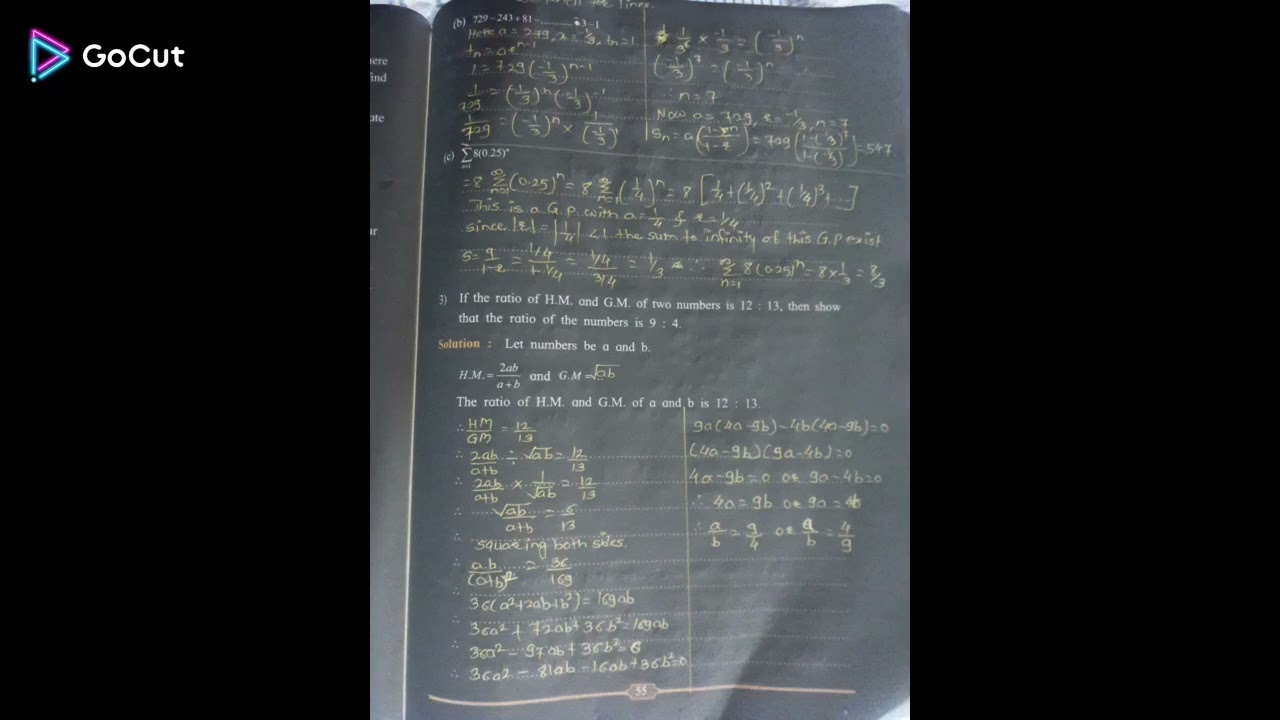 GoCut
the lines.
(b) 729 – 243 + 81 – .......... 3 – 1
Here a = 729, r = -1/3, tn = 1
tn = ar^n-1
1 = 729(-1/3)^n-1
1/729 = (-1/3)^n (-1/3)^-1
1/729 = (-1/3)^n × 1/(-1/3)^1
1/3^6 × -1/3 = (-1/3)^n
(-1/3)^7 = (-1/3)^n
∴ n = 7
Now a = 729, r = -1/3, n = 7
Sn = a(1-r^n/1-r) = 729(1-(-1/3)^7/1-(-1/3)) = 547
(c) ∑ 8(0.25)^n
= 8 ∑ n=1 ∞ (0.25)^n = 8 ∑ n=1 ∞ (1/4)^n = 8 [1/4 + (1/4)^2 + (1/4)^3 + ...]
This is a G.P. with a = 1/4 & r = 1/4
since |r| = |1/4| < 1 the sum to infinity of this G.P exist
S = a/1-r = 1/4/1-1/4 = 1/4/3/4 = 1/3 ∴ ∑ n=1 ∞ 8(0.25)^n = 8 × 1/3 = 8/3
3) If the ratio of H.M. and G.M. of two numbers is 12 : 13, then show
that the ratio of the numbers is 9 : 4.
Solution : Let numbers be a and b.
H.M. = 2ab/a+b and G.M = √ab
The ratio of H.M. and G.M. of a and b is 12 : 13.
∴ HM/GM = 12/13
∴ 2ab/a+b ÷ √ab = 12/13
∴ 2ab/a+b × 1/√ab = 12/13
∴ √ab/a+b = 6/13
∴ squaring both sides.
∴ ab/(a+b)^2 = 36/169
∴ 36(a²+2ab+b²) = 169ab
∴ 36a² + 72ab + 36b² = 169ab
∴ 36a² – 97ab + 36b² = 0
∴ 36a² – 81ab – 16ab + 36b² = 0
9a(4a-9b) – 4b(4a-9b) = 0
(4a-9b)(9a-4b) = 0
4a-9b = 0 or 9a-4b = 0
∴ 4a = 9b or 9a = 4b
∴ a/b = 9/4 or a/b = 4/9
55